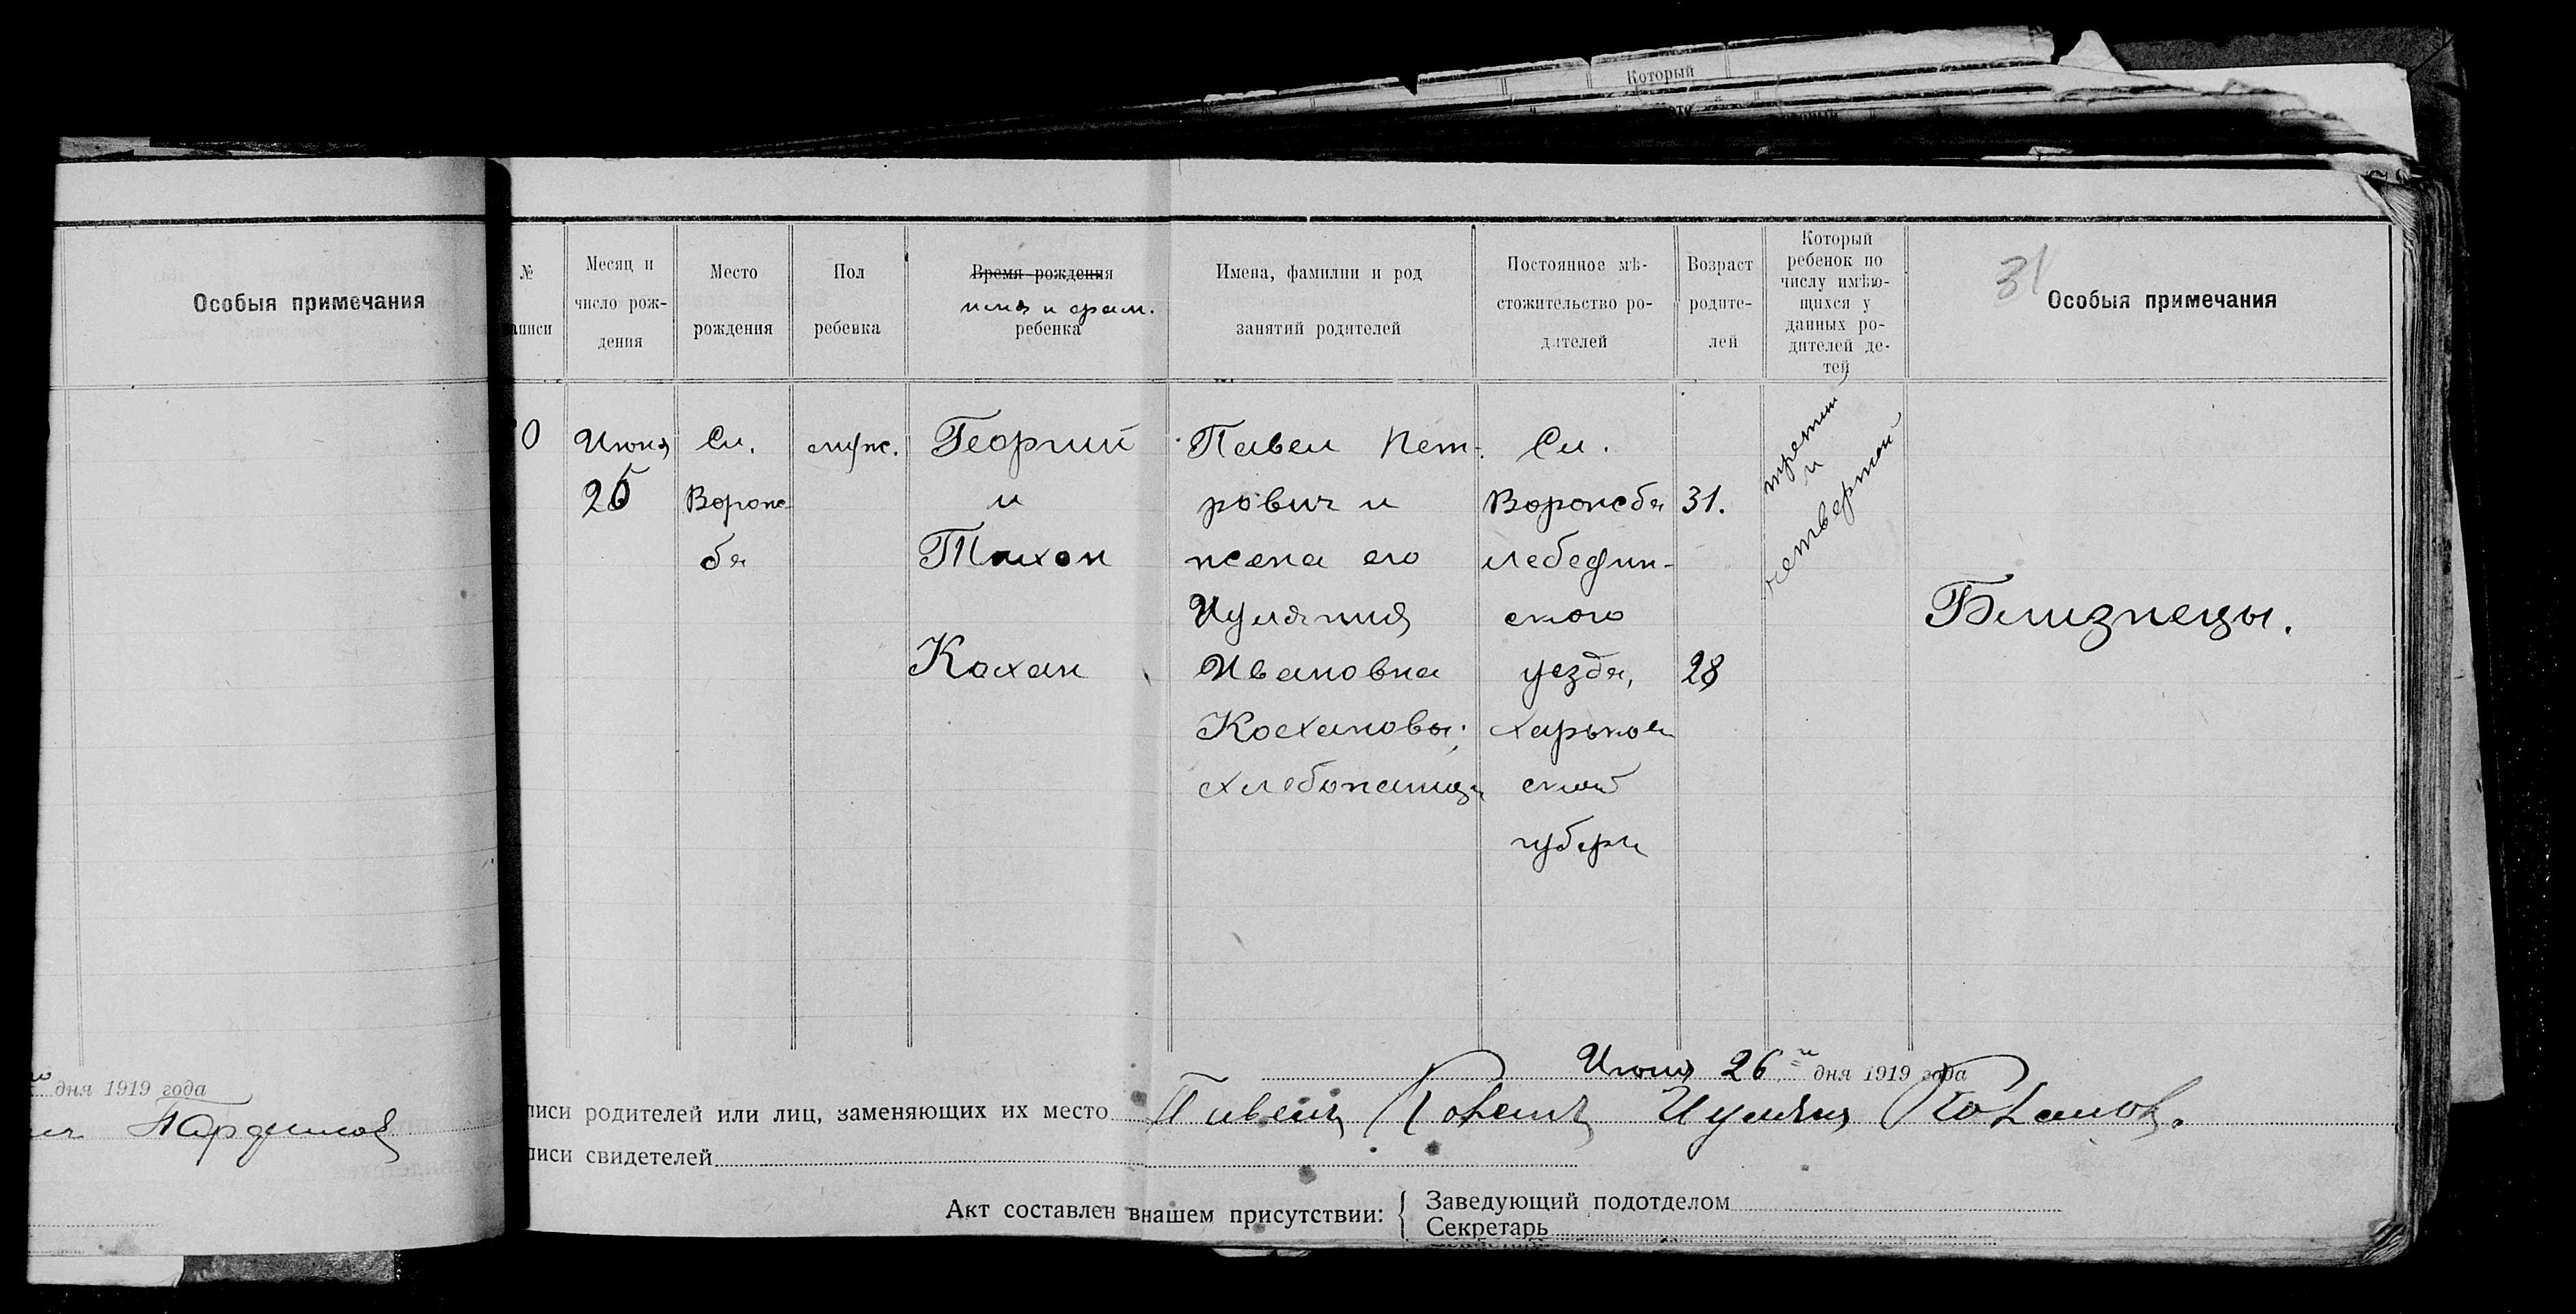 Который
Особыя примечания
дня 1919 года
№
аписи
Месяц и
число рож-
дения
Место
рождения
Пол
ребенка
Время рождения
имя и фам.
ребенка
Имена, фамилии и род
занятий родителей
Постоянное мѣ-
стожительство ро-
дителей
Возраст
родите-
лей
Который
ребенок по
числу имѣю-
щихся у
данных ро-
дителей де-
тей
31
Особыя примечания
0
Июня
25
Сл.
Ворож-
ба
муж.
Георгий
и
Тихон
Кохан
Павел Пет-
рович и
жена его
Иулания
Ивановна
Кохановы;
хлебопашцы
Сл.
Ворожба
лебедин-
ского
уезда,
харьков
ской
губерн
31.
28
третий
и
четвертой
Близнецы.
Июня 26 го дня 1919 года
писи родителей или лиц, заменяющих их место Павелъ Иуляния
писи свидетелей
Акт составлен внашем присутствии:
Заведующий подотделом
Секретарь